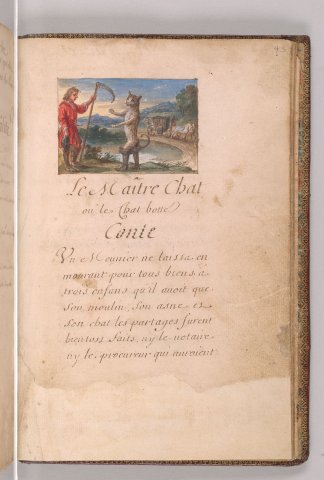 Le Maître Chat
ou le Chat botté
Conte
Un Meunier ne laissa en
mourant pour tous biens a
trois enfans qu'il avoit que
son moulin, son asne et
son chat les partages furent
bientost faits, ny le notaire
ny le procureur qui auroient